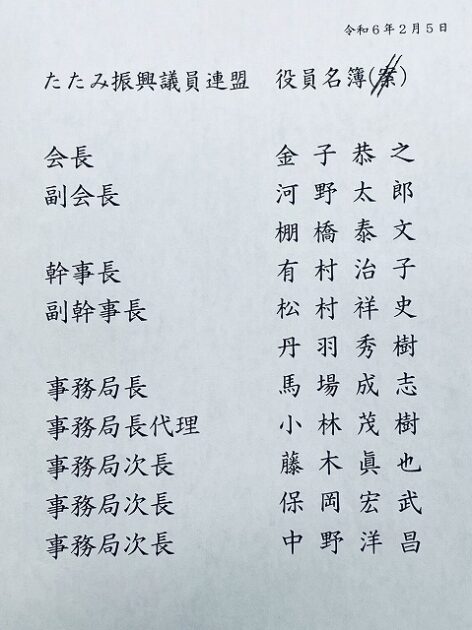 令和６年２月５日
たたみ振興議員連盟　役員名簿(案)
会長　金子恭之
副会長　河野太郎
棚橋泰文
幹事長　有村治子
副幹事長　松村祥史
丹羽秀樹
事務局長　馬場成志
事務局長代理　小林茂樹
事務局次長　藤木眞也
事務局次長　保岡宏武
事務局次長　中野洋昌